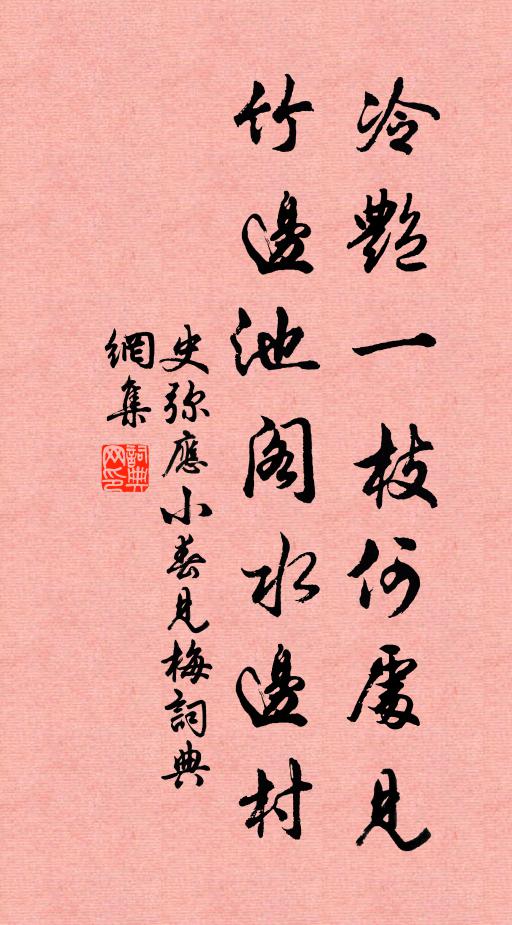 冷艷一枝何處見
竹邊池閣水邊村
史弥應小春見梅詞典
網集
詞典網印